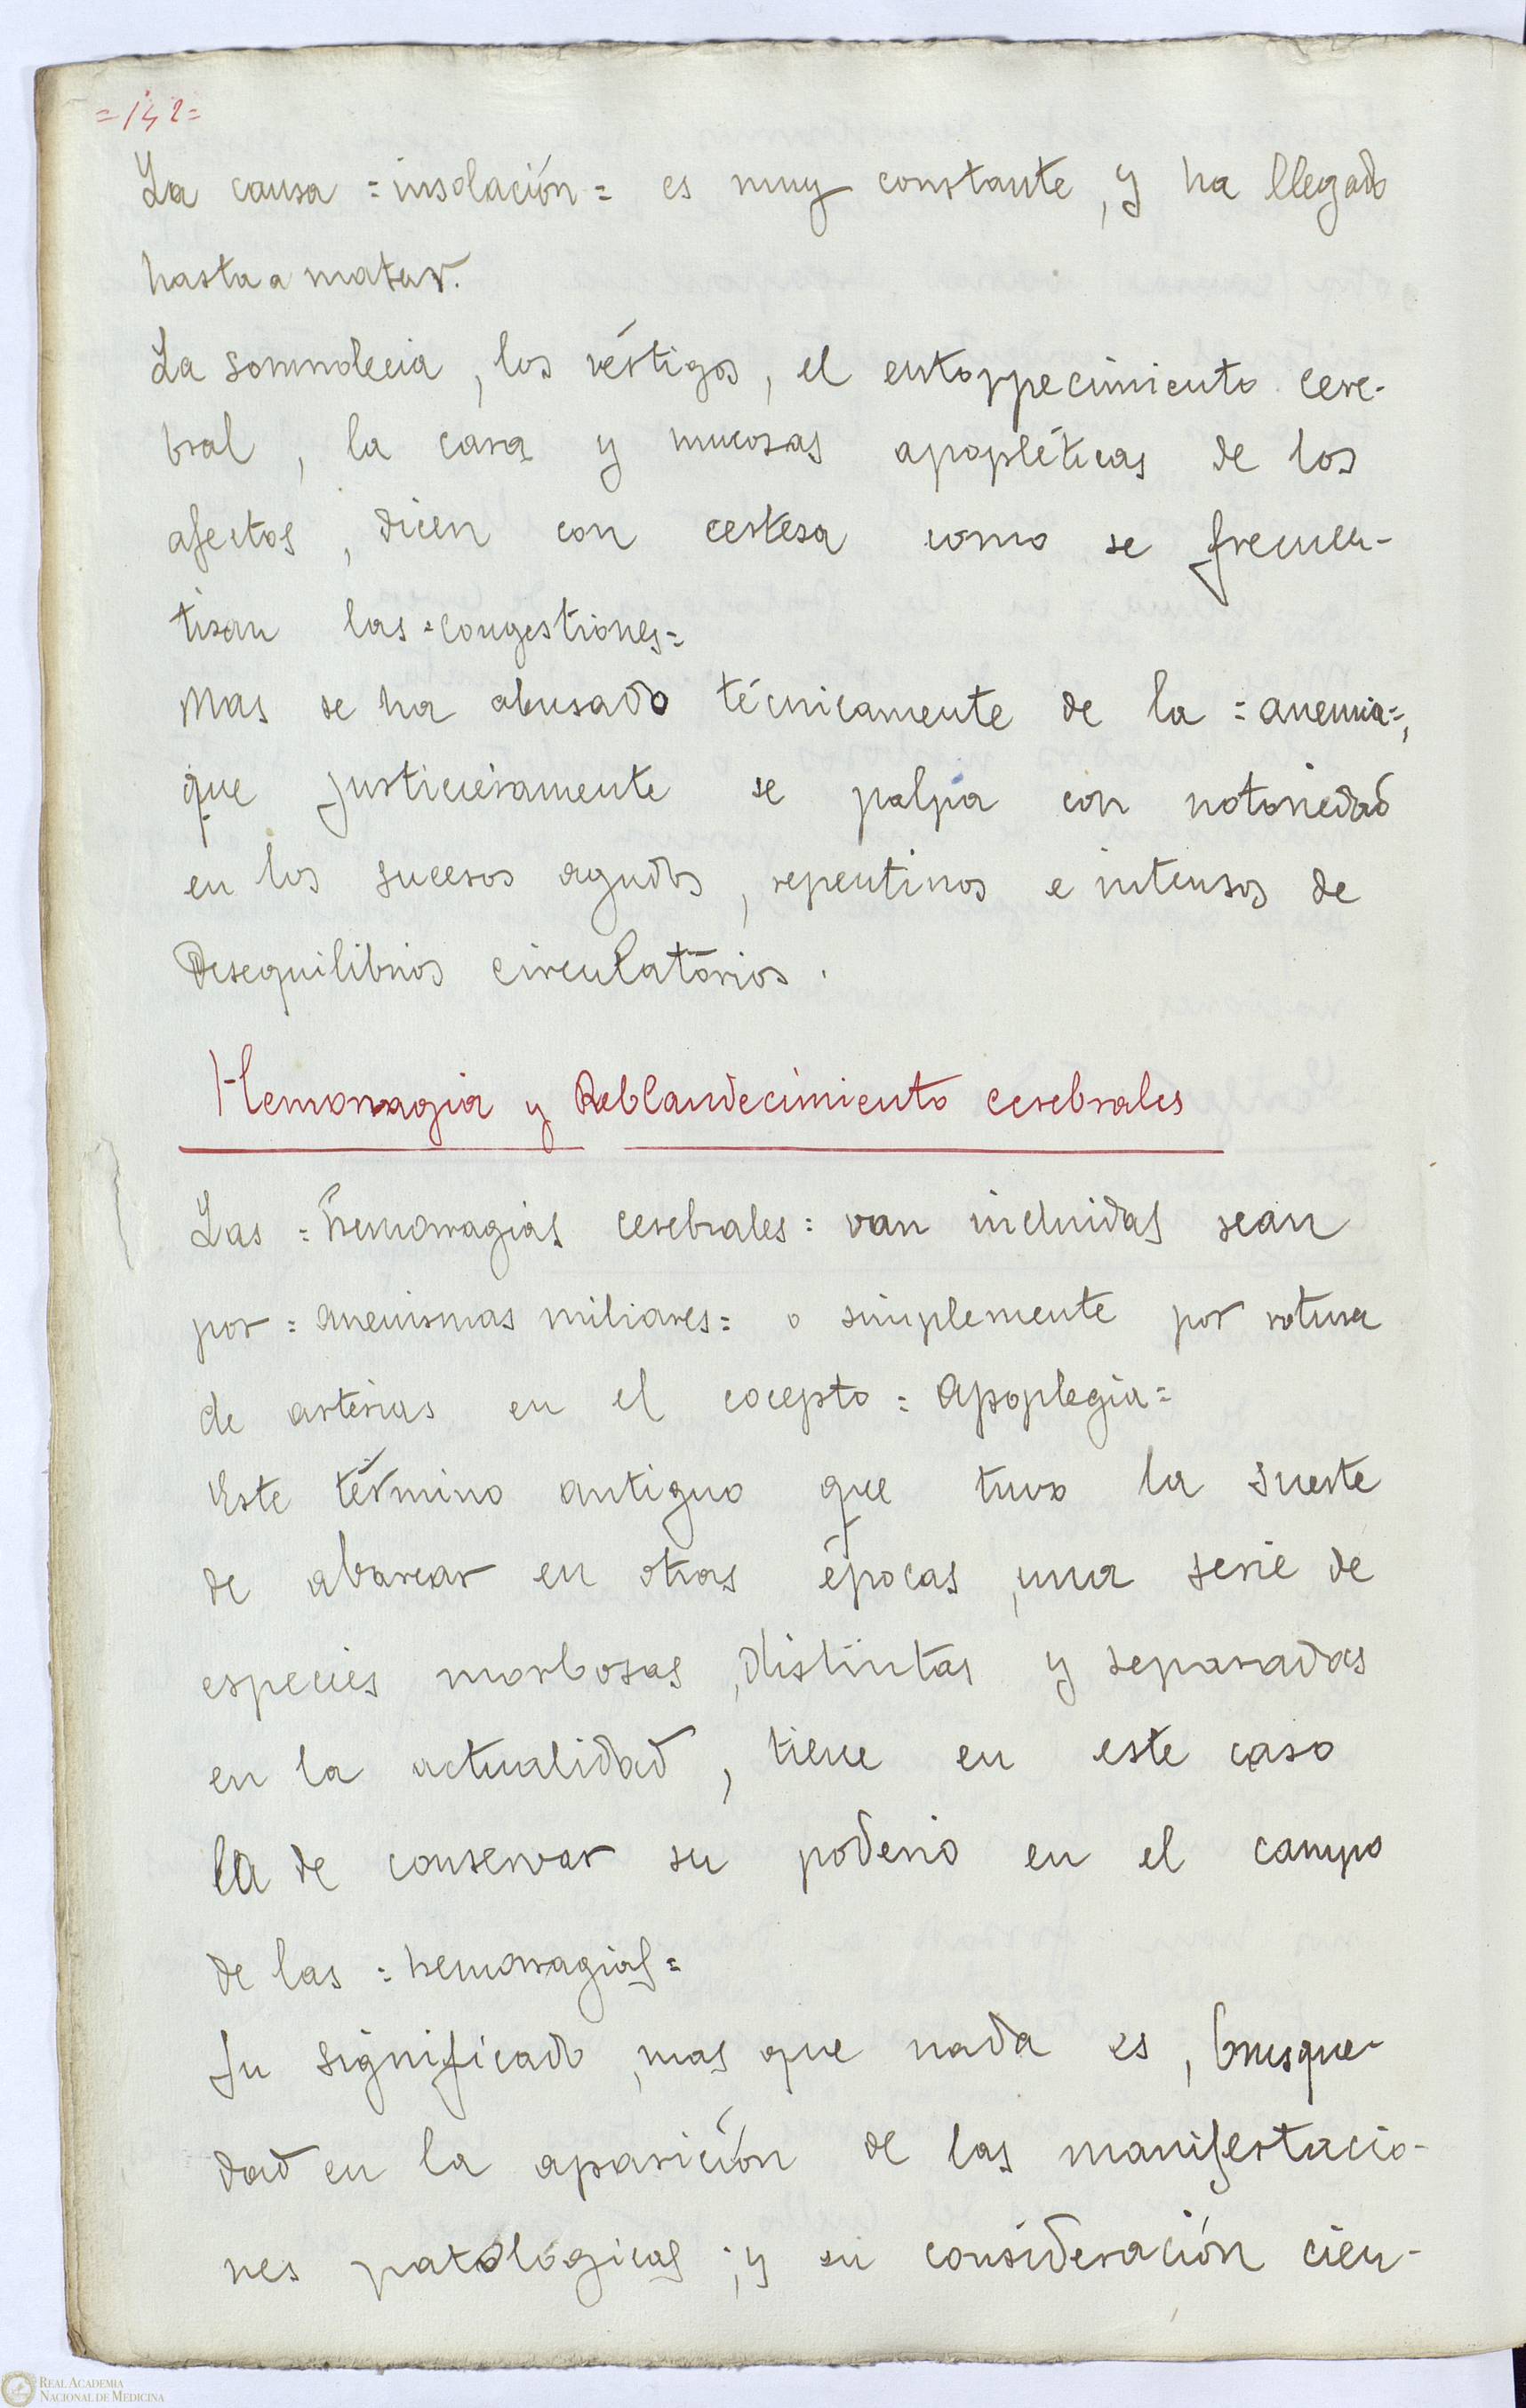 =142=
La causa =insolación= es muy constante, y ha llegado
hasta a matar.
La somnolecia, los vértigos, el entorpecimiento cere-
bral, la cara y mucosas apopléticas de los
afectos, dicen con certesa como se frecuen-
tisan las =congestiones=
Mas se ha abusado técnicamente de la =anemia=,
que justicieramente se palpa con notoriedad
en los sucesos agudos, repentinos e intensos de
Desequilibrios circulatorios.
Hemorragia y Reblandecimiento cerebrales
Las =hemorragias cerebrales= van incluidas sean
por =aneurismas miliares= o simplemente por rotura
de arterias en el cocepto =Apoplegia=
Este término antiguo que tuvo la suerte
de abarcar en otras épocas, una serie de
especies morbosas, distintas y separadas
en la actualidad, tiene en este caso
la de conservar su poderio en el campo
de las =hemorragias=
Su significado, mas que nada es, brusque-
dad en la aparición de las manifestacio-
nes patológicas; y su consideración cien-
REAL ACADEMIA
NACIONAL DE MEDICINA